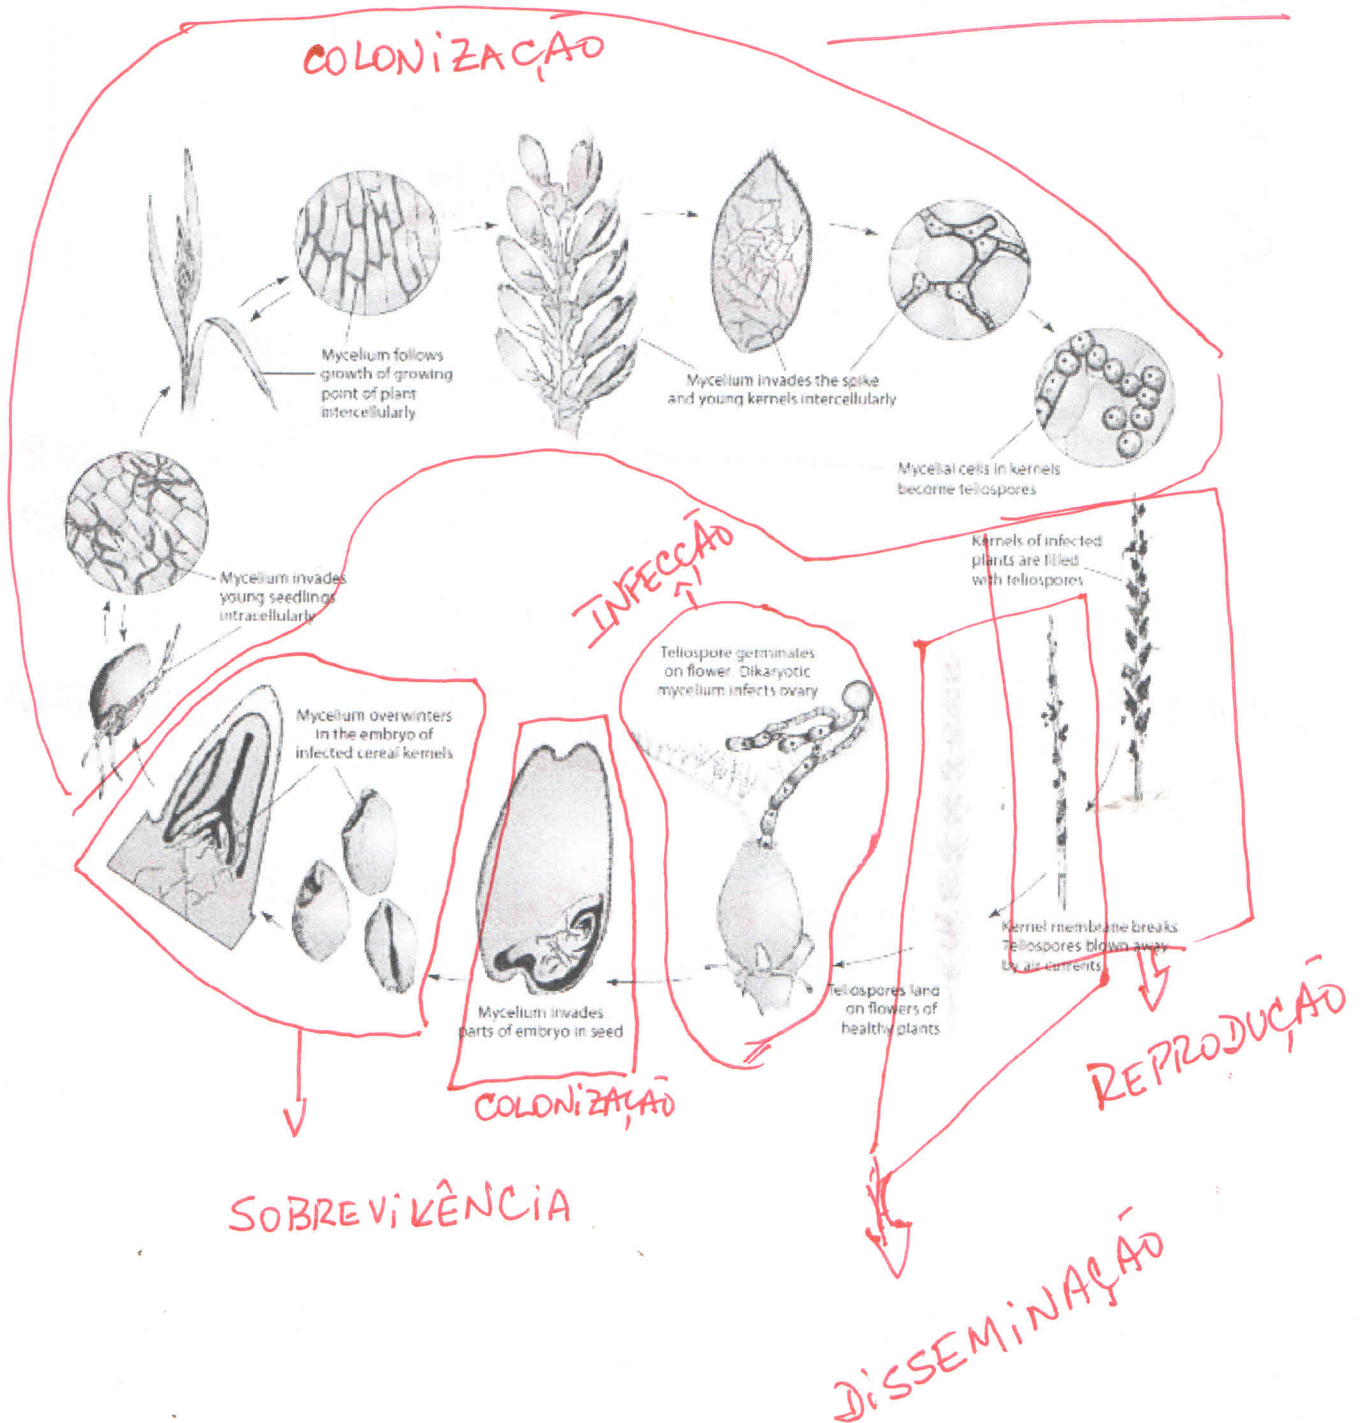 COLONIZAÇÃO
Mycelium follows
growth of growing
point of plant
intercellularly
Mycelium invades the spike
and young kernels intercellularly
Mycelial cells in kernels
become teliospores
Mycelium invades
young seedlings
intracellularly
INFECÇÃO
Kernels of infected
plants are filled
with teliospores
Teliospore germinates
on flower. Dikaryotic
mycelium infects ovary
Mycelium overwinters
in the embryo of
infected cereal kernels
Kernel membrane breaks.
Teliospores blown away
by air currents
Teliospores land
on flowers of
healthy plants
Mycelium invades
parts of embryo in seed
COLONIZAÇÃO
REPRODUÇÃO
SOBREVIVÊNCIA
DISSEMINAÇÃO